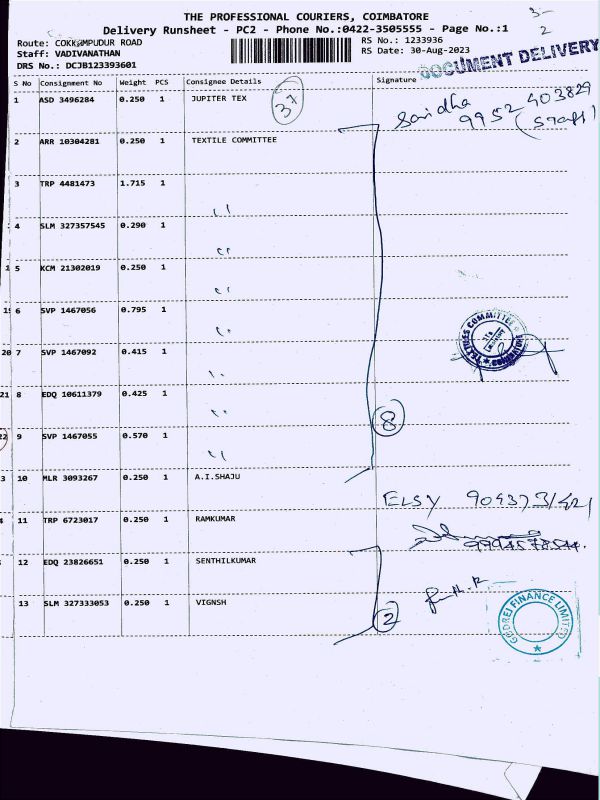 THE PROFESSIONAL COURIERS, COIMBATORE
Delivery Runsheet - PC2 - Phone No.:0422-3505555 - Page No.:1
Route: COKKAMPUDUR ROAD RS No.: 1233936
Staff: VADIVANATHAN RS Date: 30-Aug-2023
DRS No.: DCJB123393601
DOCUMENT DELIVERY
3-
2
S No Consignment No Weight PCS Consignee Details Signature
1 ASD 3496284 0.250 1 JUPITER TEX 37
9952 403829
(Staff)
2 ARR 10304281 0.250 1 TEXTILE COMMITTEE
3 TRP 4481473 1.715 1 "
4 SLM 327357545 0.290 1 "
5 KCM 21302019 0.250 1 "
6 SVP 1467056 0.795 1 "
TEXTILES COMMITTEE
COIMBATORE
7 SVP 1467092 0.415 1 "
8 EDQ 10611379 0.425 1 "
8
9 SVP 1467055 0.570 1 "
10 MLR 3093267 0.250 1 A.I.SHAJU
ELSY
11 TRP 6723017 0.250 1 RAMKUMAR
12 EDQ 23826651 0.250 1 SENTHILKUMAR
13 SLM 327333053 0.250 1 VIGNSH
2
GODREJ FINANCE LIMITED